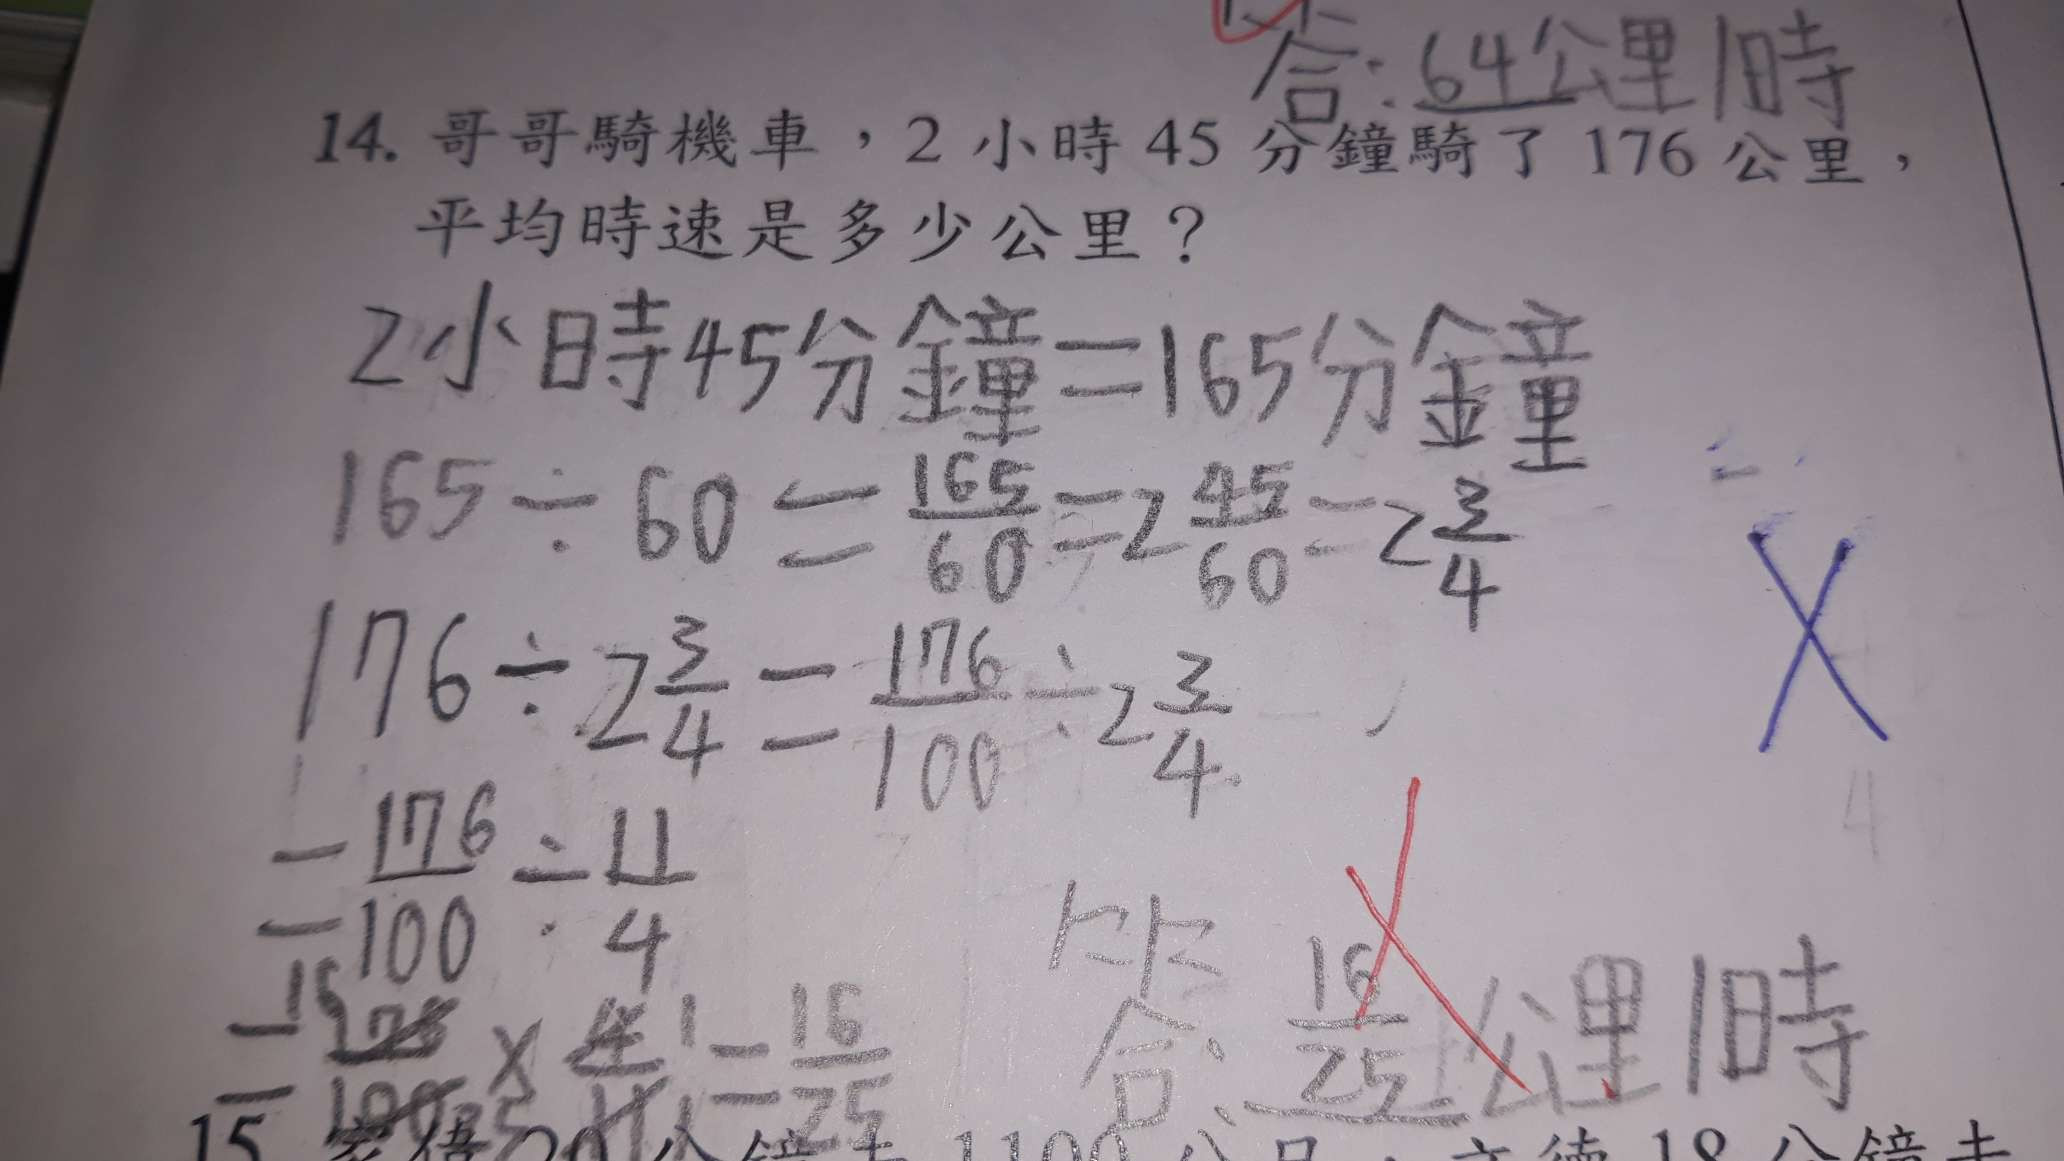 答:64公里/時
14. 哥哥騎機車,2 小時 45 分鐘騎了 176 公里,
平均時速是多少公里?
2小時45分鐘=165分鐘
165÷60=165/60=2 45/60=2 3/4
176÷2 3/4=176/100÷2 3/4
=176/100÷11/4
=176/100×4/11=16/25
答:16/25公里/時
15. 20 分鐘走 1100 公尺,文德 18 分鐘走